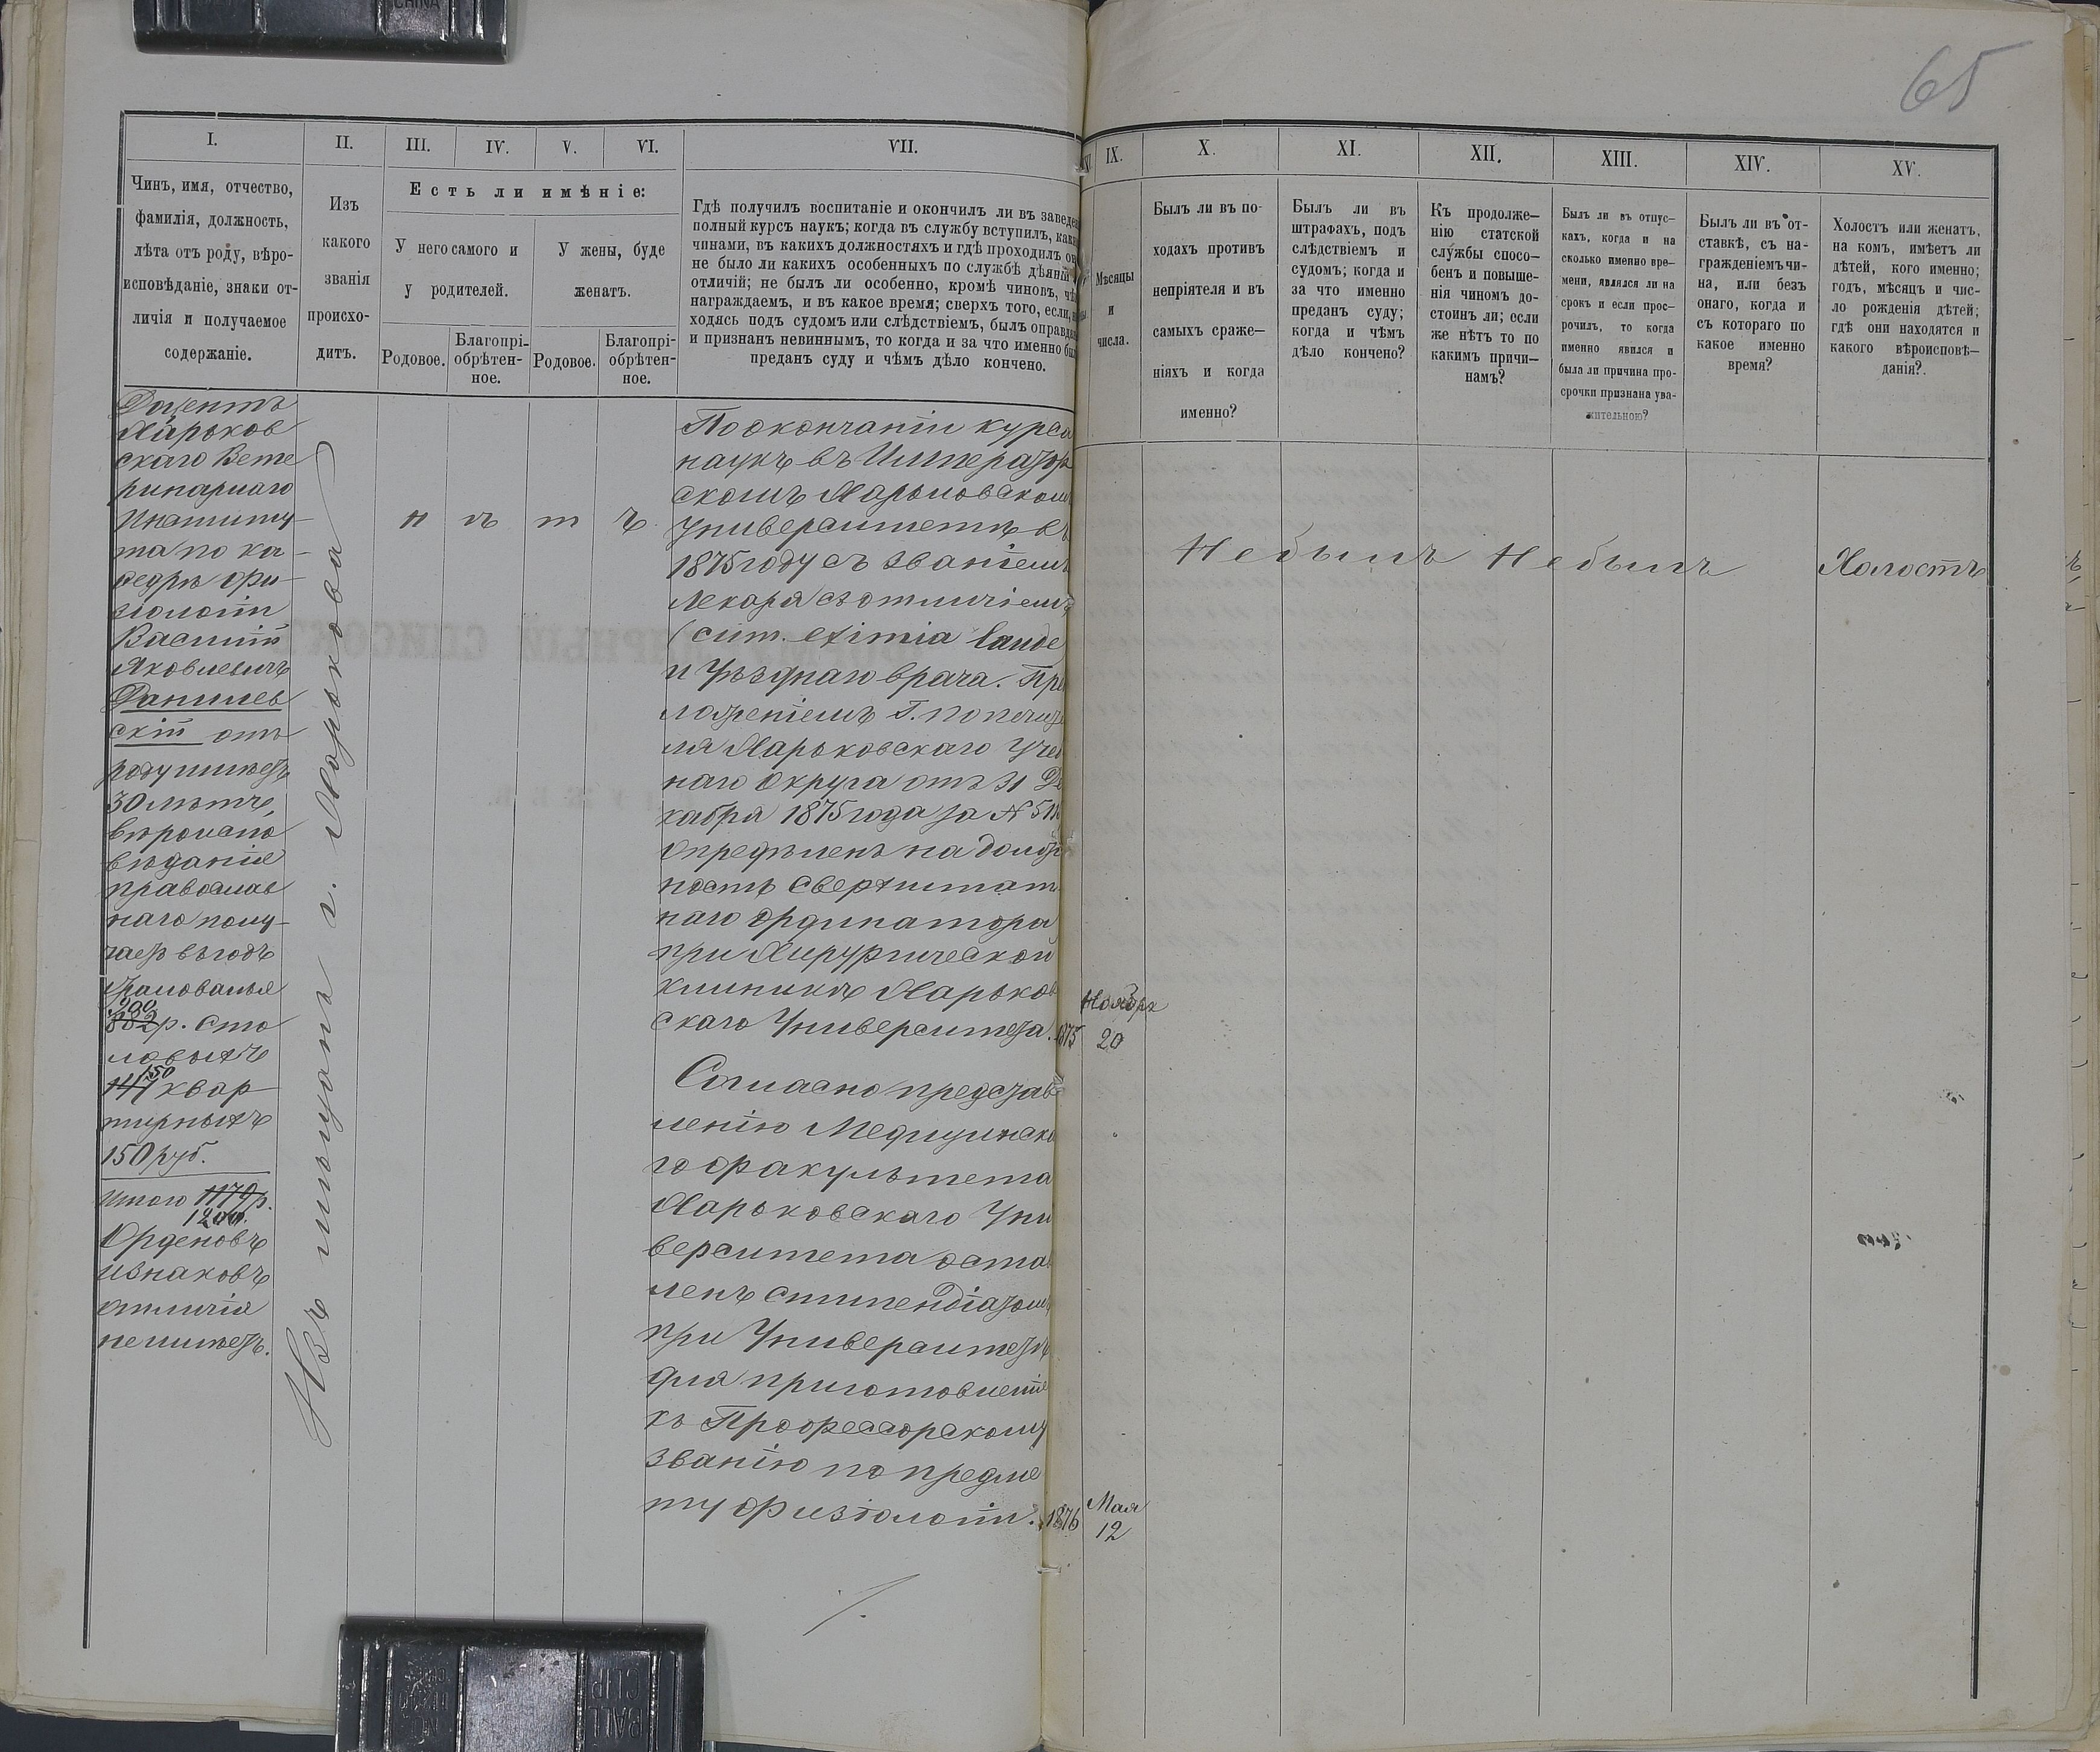 65
I.
II.
III.
IV.
V.
VI.
VII.
IX.
X.
XI.
XII.
XIII.
XIV.
XV.
Чинъ, имя, отчество,
фамилія, должность,
лѣта отъ роду, вѣро-
исповѣданіе, знаки от-
личія и получаемое
содержаніе.
Изъ
какого
званія
происхо-
дитъ.
Есть ли имѣніе:
У него самого и
у родителей.
У жены, буде
женатъ.
Родовое.
Благопрі-
обрѣтен-
ное.
Родовое.
Благопрі-
обрѣтен-
ное.
Гдѣ получилъ воспитаніе и окончилъ ли въ заведе
полный курсъ наукъ; когда въ службу вступилъ, как
чинами, въ какихъ должностяхъ и гдѣ проходилъ он
не было ли какихъ особенныхъ по службѣ дѣяній
отличій; не былъ ли особенно, кромѣ чиновъ, чѣ
награждаемъ, и въ какое время; сверхъ того, если, н
ходясь подъ судомъ или слѣдствіемъ, былъ оправда
и признанъ невиннымъ, то когда и за что именно бы
преданъ суду и чѣмъ дѣло кончено.
Мѣсяцы
и
числа.
Былъ ли въ по-
ходахъ противъ
непріятеля и въ
самыхъ сраже-
ніяхъ и когда
именно?
Былъ ли въ
штрафахъ, подъ
слѣдствіемъ и
судомъ; когда и
за что именно
преданъ суду;
когда и чѣмъ
дѣло кончено?
Къ продолже-
нію статской
службы спосо-
бенъ и повыше-
нія чиномъ до-
стоинъ ли; если
же нѣтъ то по
какимъ причи-
намъ?
Былъ ли въ отпус-
кахъ, когда и на
сколько именно вре-
мени, являлся ли на
срокъ и если прос-
рочилъ, то когда
именно явился и
была ли причина про-
срочки признана ува-
жительною?
Былъ ли въ от-
ставкѣ, съ на-
гражденіемъ чи-
на, или безъ
онаго, когда и
съ котораго по
какое именно
время?
Холостъ или женатъ,
на комъ, имѣетъ ли
дѣтей, кого именно;
годъ, мѣсяцъ и чис-
ло рожденія дѣтей;
гдѣ они находятся и
какого вѣроисповѣ-
данія?
Доцентъ
Харьков
скаго Вете
ринарнаго
Институ-
та по ка-
ѳедрѣ фи-
зіологіи
Василій
Яковлевичъ
Данилев
скій отъ
роду имѣетъ
30 лѣтъ,
вѣроиспо
вѣданія
православ
наго полу-
чаетъ въ годъ
жалованья
900
882 р. сто
ловыхъ
150
147 квар
тирныхъ
150 руб.
Итого 1179 р.
1200.
Орденовъ
и знаковъ
отличія
не имѣетъ.
Изъ мѣщанъ г. Харькова
н ѣ т ъ
По окончаніи курса
наукъ въ Император
скомъ Харьковском
Университетѣ въ
1875 году съ званіемъ
Лекаря съ отличіемъ
(cum. eximia laude
и Уѣзднаго врача. Пре
ложеніемъ Г. Попечите
ля Харьковскаго Учеб
наго Округа отъ 31 Де
кабря 1875 года за №
опредѣленъ на долж
ность сверхштат
наго Ординатора
при Хирургической
клиникѣ Харьков
скаго Университета.
1875
Ноября
20
Согласно представ
ленію Медицинска
го факультета
Харьковскаго Уни
верситета остав
ленъ стипендіатомъ
при Университетѣ
для приготовленія
къ Профессорскому
званію по предме
ту физіологіи.
1876
Мая
12
Не былъ
Не былъ
Холостъ